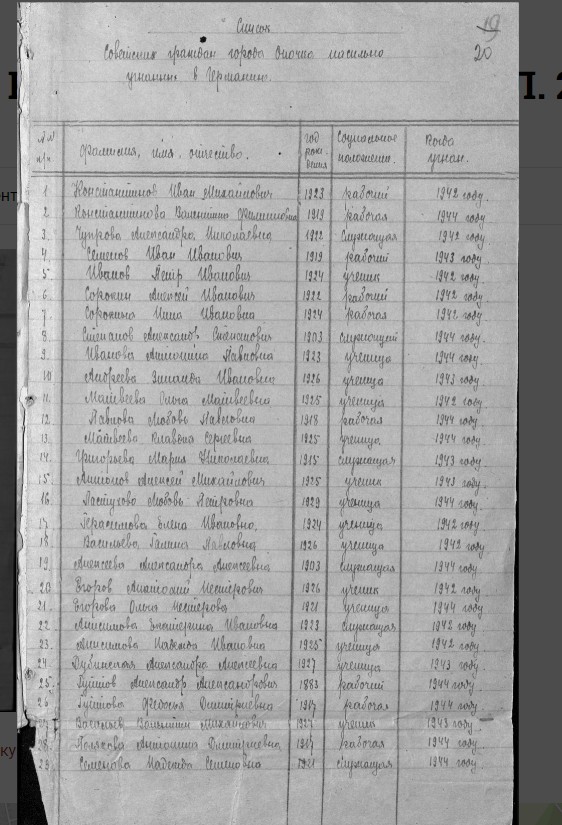 19
20
Список
Советских граждан города Опочка насильно
угнаных в Германию.
№№ п/п Фамилия, имя, отчество. год рождения Социальное положение. Когда угнан.
1 Константинов Иван Михайлович 1923 рабочий 1942 году.
2 Константинова Валентина Филипповна 1919 рабочая 1944 году.
3. Чупрова Александра Николаевна 1922 служащая 1942 году
4 Семенов Иван Иванович 1919 рабочий 1943 году
5 Иванов Петр Иванович 1924 ученик 1942 году.
6 Сорокин Алексей Иванович 1922 рабочий 1942 году.
7. Сорокина Нина Ивановна 1924 рабочая 1942 году.
8 Степанов Александр Степанович 1903 служащий 1944 году.
9. Иванова Антонина Павловна 1923 ученица 1944 году.
10 Андреева Зинаида Ивановна 1926 ученица 1943 году.
11 Матвеева Ольга Матвеевна 1925 ученица 1942 году
12. Павлова Любовь Павловна 1918 рабочая 1944 году
13. Матвеева Клавдия Сергеевна 1925 ученица 1944 году
14 Григорьева Мария Николаевна 1915 служащая 1943 году.
15 Алексей Михайлович 1925 ученик 1943 году.
16. Пастухова Любовь Петровна 1929 ученица 1944 году.
17 Герасимова Елена Ивановна, 1924 ученица 1942 году
18 Васильева Галина Павловна 1926 ученица 1942 году
19 Алексеева Александра Алексеевна 1903 служащая 1944 году
20 Егоров Анатолий Нестерович 1926 ученик 1942 году
21. Егорова Ольга Нестерова 1921 ученица 1944 году
22 Анисимова Екатерина Ивановна 1923 служащая 1942 году
23. Анисимова Надежда Ивановна 1925 ученица 1942 году.
24 Дубинская Александра Алексеевна 1927 ученица 1943 году.
25. Александр Александрович 1883 рабочий 1944 году.
26 Федосья Дмитриевна 1917 рабочая 1944 году.
27 Васильев Валентин Михайлович 1927 ученик 1943 году.
28. Полякова Антонина Дмитриевна 1917 рабочая 1944 году.
29. Семенова Надежда Семеновна 1921 служащая 1944 году.